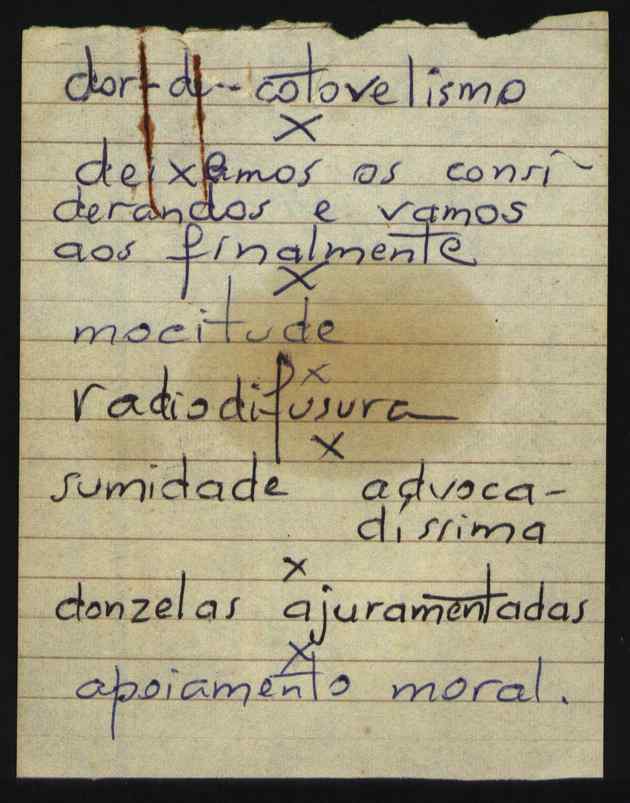 dor-de-cotovelismo
X
deixemos os consi-
derandos e vamos
aos finalmente
X
mocitude
X
radiodifusura
X
sumidade advoca-
díssima
X
donzelas ajuramentadas
X
apoiamento moral.